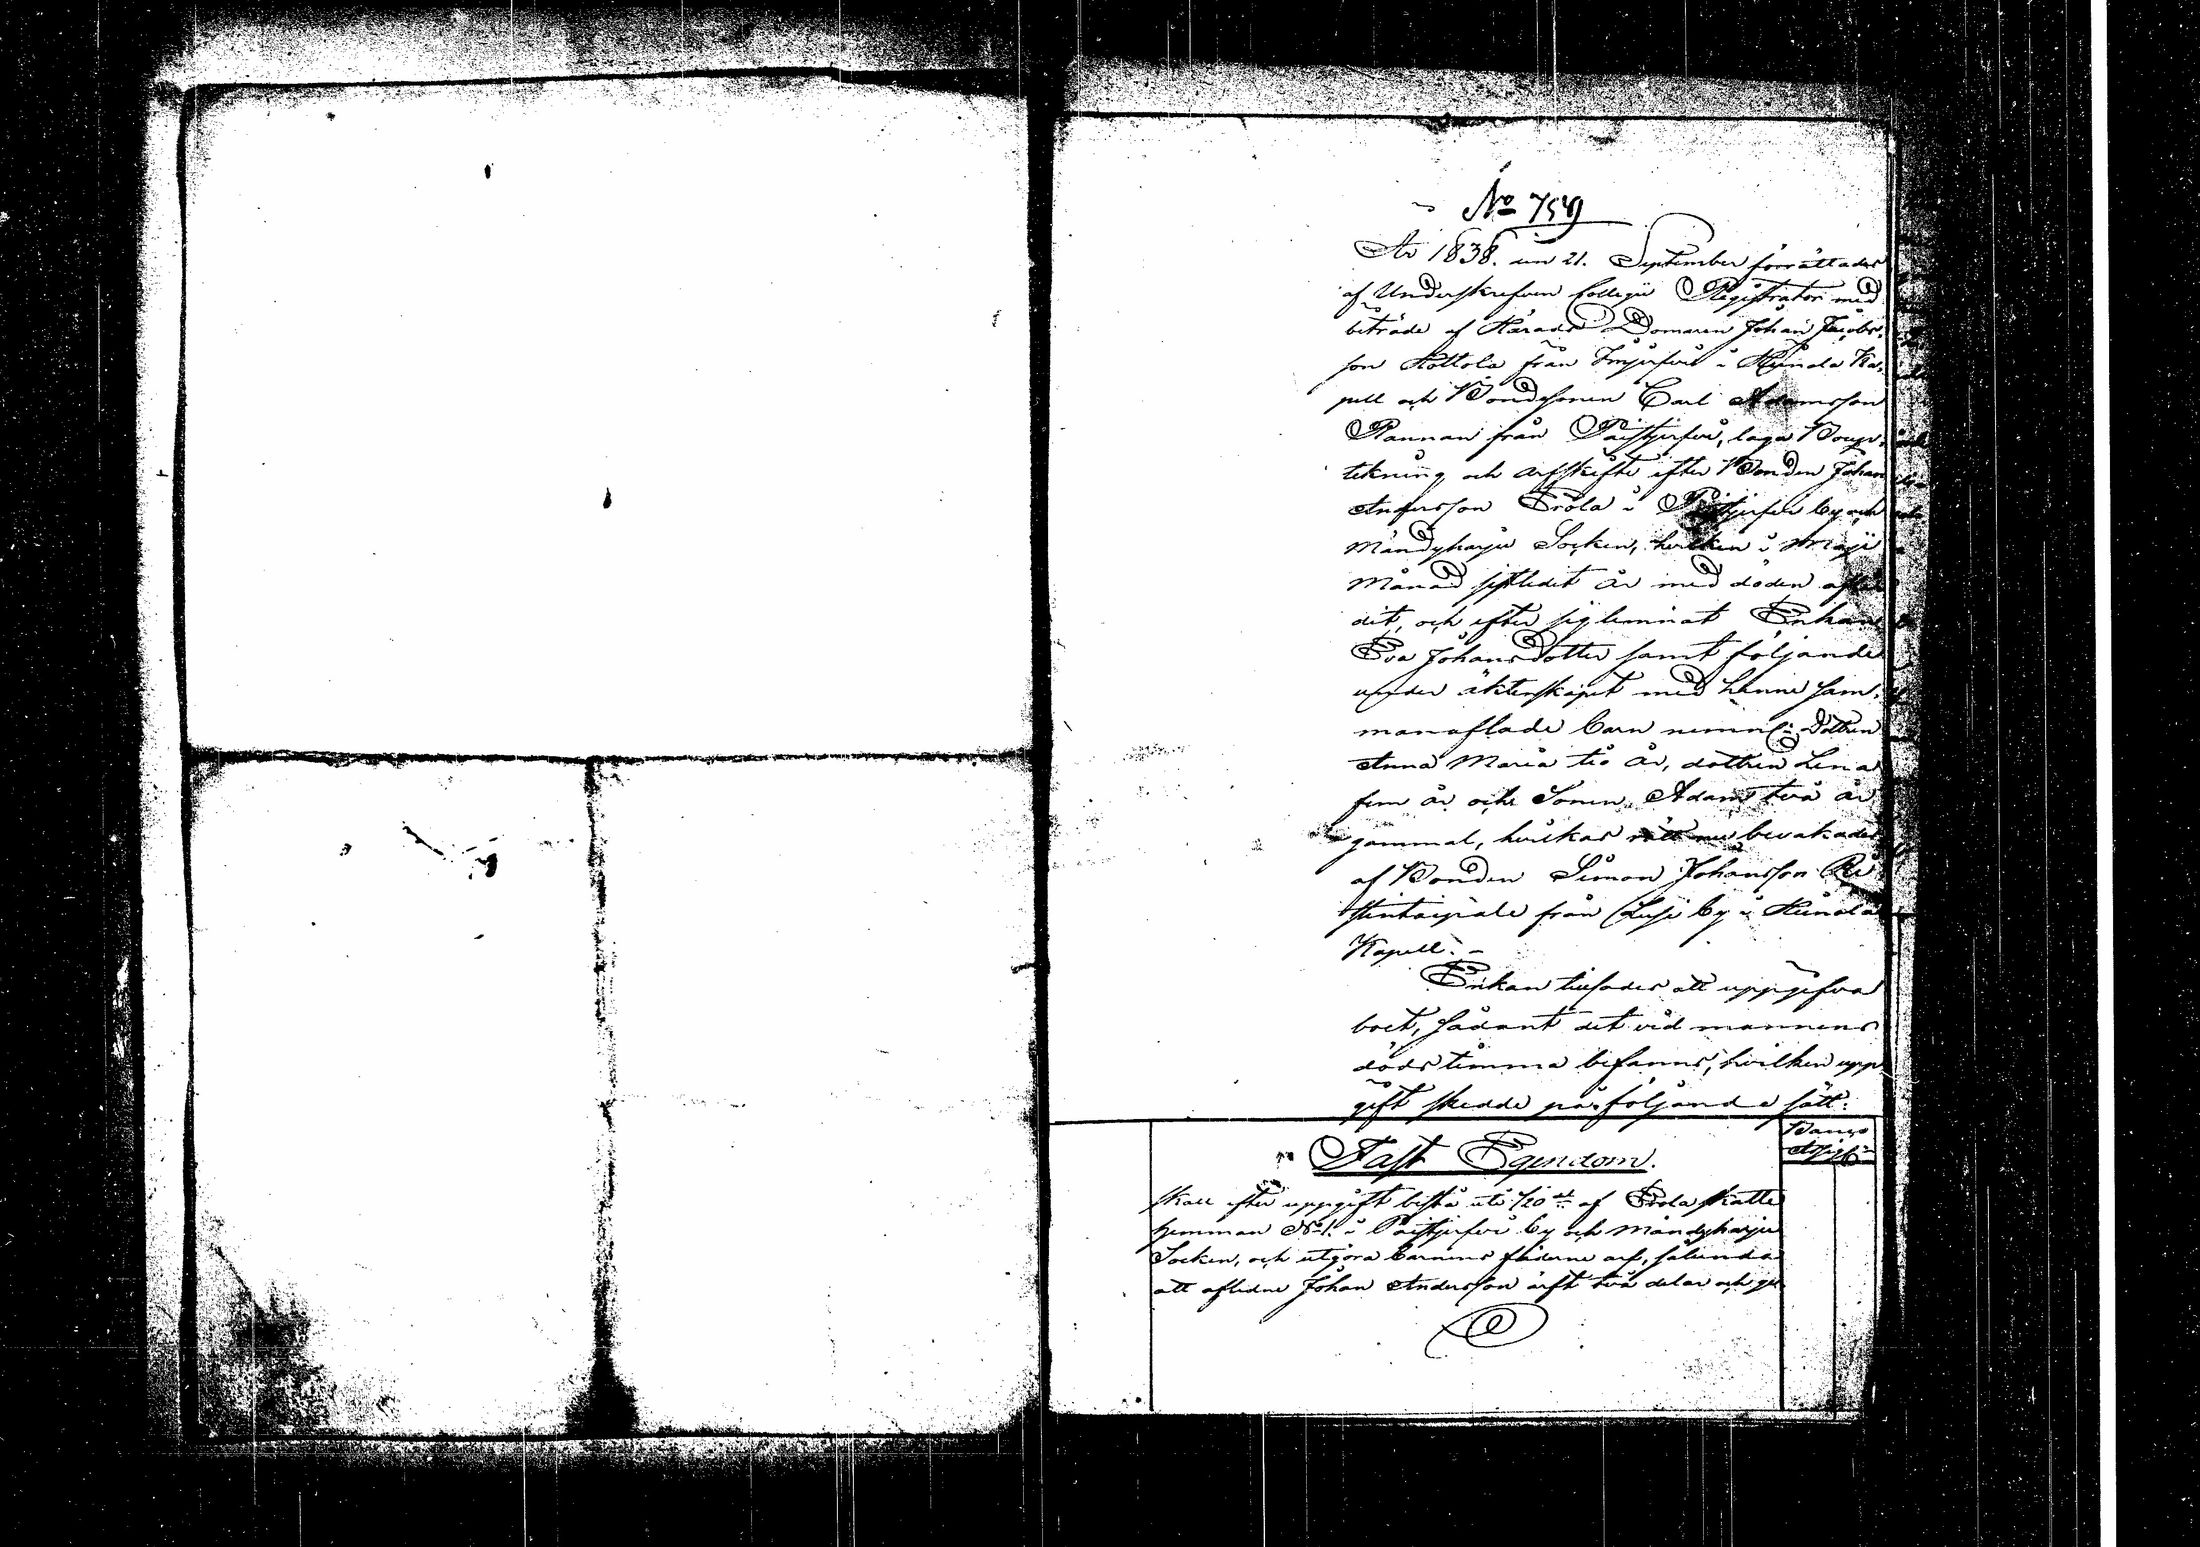 No 759
År 1838. den 21. September förrättades
af Underskrefven Collegii Registrator med
biträde af Härads Domaren Johan Jacobs-
son Kottola från Imjerfvi i Hiinda Ka-
pell och Bondesonen Carl Adamsson
Pannan från Paistjerfvi, laga Boupp-
tekning och arfskifte efter Bonden Johan
Andersson Eröla i Paistjerfvi by och
Mändyharju Socken, hvilken i Maji
Månad sistledit år med döden afli-
dit, och efter sig lemnat Enkan
Eva Johansdotter samt följande
under äktenskapet med henne sam-
manaflade barn nemnl: Dottren
Anna Maria tio år, dottren Lena
fem år och Sonen Adam två år
gammal, hvilkas rätt nu bevakades
af Bonden Simon Johansson
från Lusi by i Hiinola
Kapell. -
Enkan tillsades att uppgifva
boet, sådant det vid mannens
dödstimma befanns, hvilken upp-
gift skedde på följande sätt:
Banco
Assign:
Fast Egendom.
Skall efter uppgift bestå uti 1/20 del af Eröla skatte
hemman No 1. i Paistjerfvi by och Mändyharju
Socken, och utgöra barnens fäderne arf, sålunda
att aflidne Johan Andersson ärft två delar och ge-